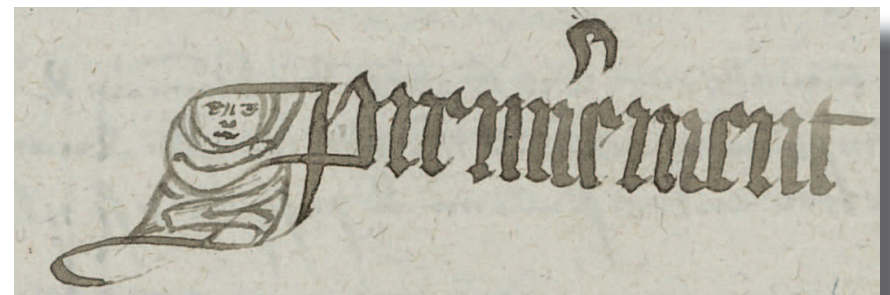 Premi͛ement